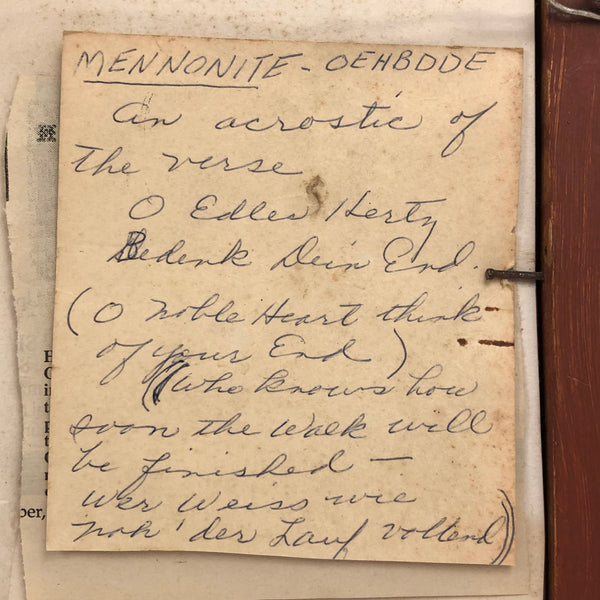 MENNONITE - OEHBDDE
an acrostic of
the verse
O Edles Hertz
Bedenk Dein End.
(O noble Heart think
of your End)
(who knows how
soon the walk will
be finished —
wer Weiss wie
noh' der Lauf vollend))
ber,